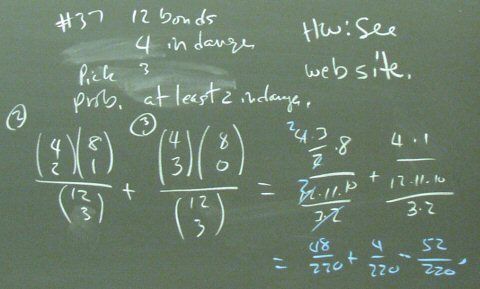 #37 12 bonds
4 in danger
Pick 3
prob. at least 2 in danger.
HW: See
web site.
② (4 2)(8 1) / (12 3) + ③ (4 3)(8 0) / (12 3) = (4·3 / 2 · 8) / (12·11·10 / 3·2) + (4·1) / (12·11·10 / 3·2)
= 48/220 + 4/220 = 52/220.